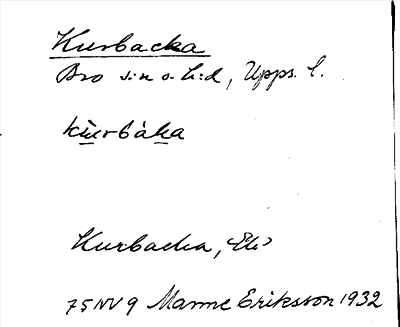 Kurbacka
Bro s:n o. h:d, Upps. l.
kùrbàka
Kurbacka, Ek
75 NV 9 Manne Eriksson 1932